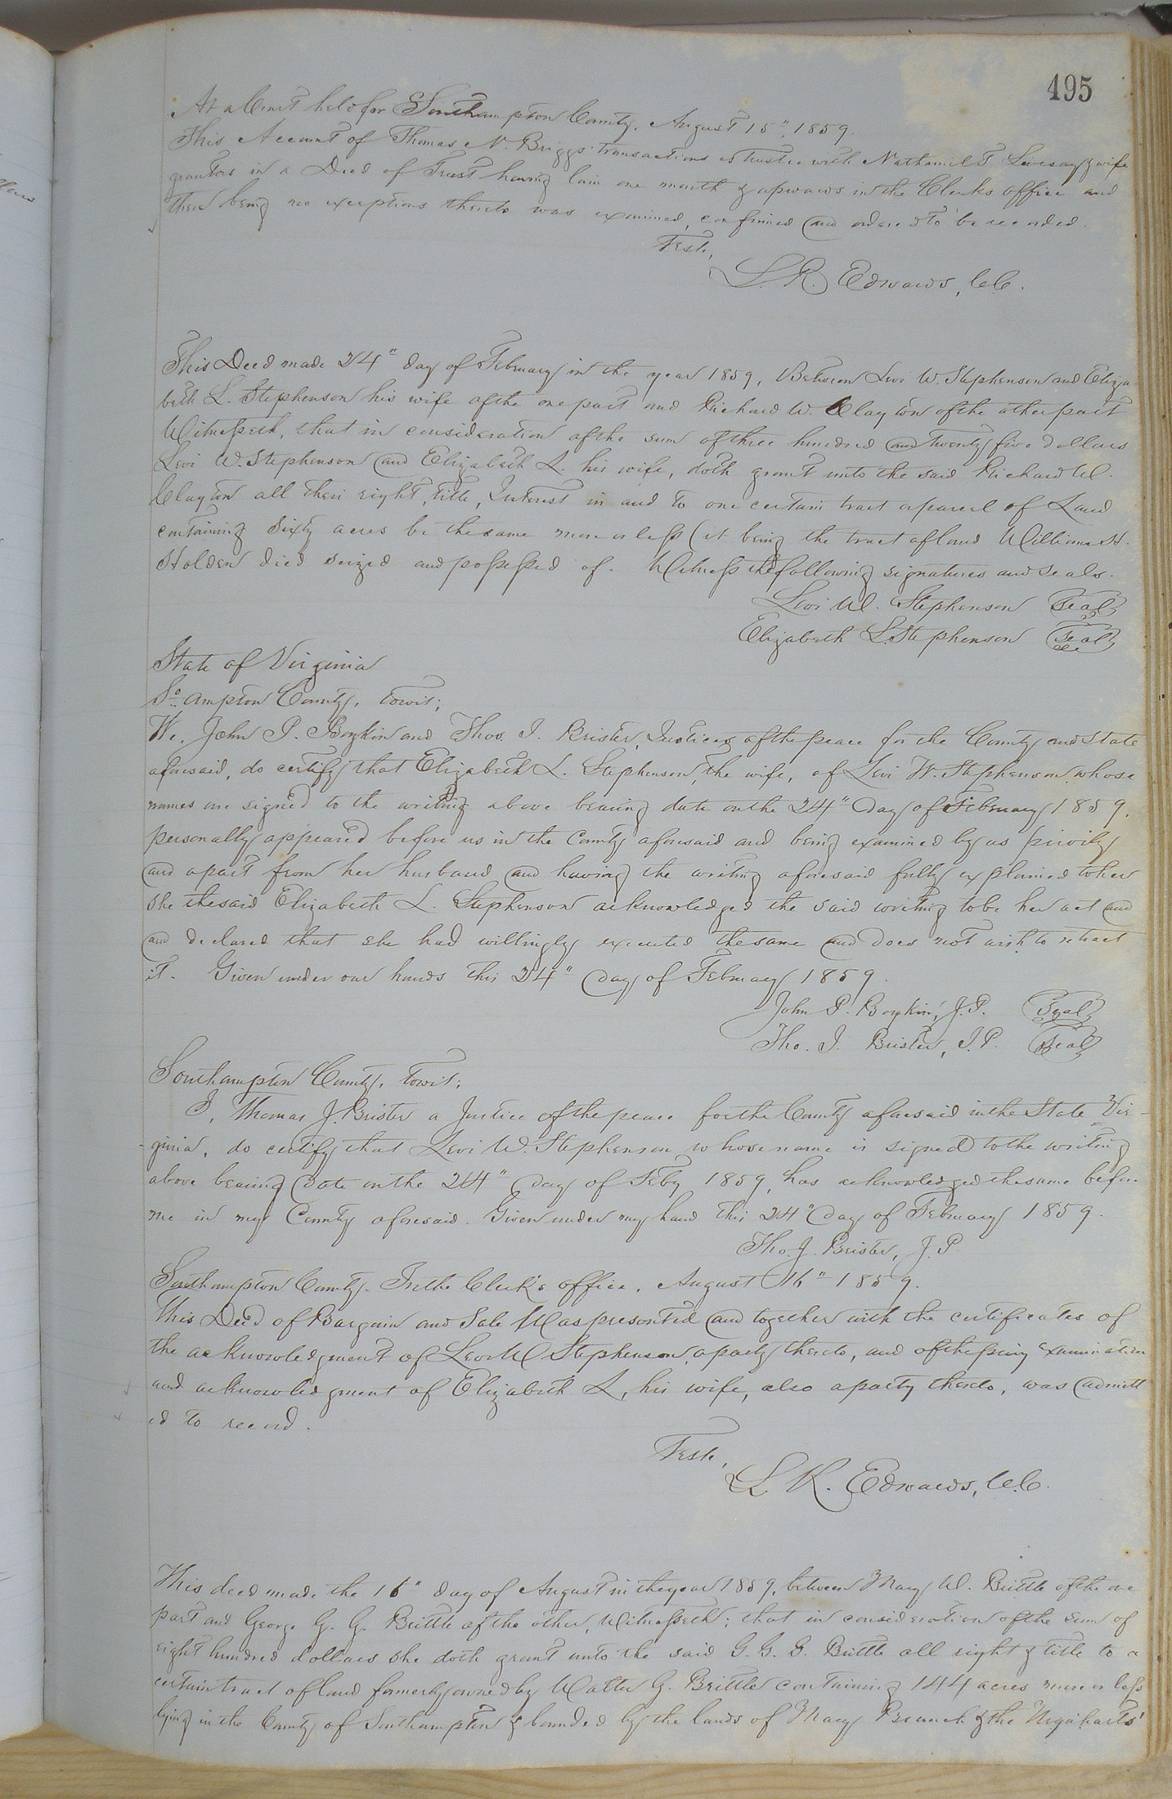 495
At a Court held for Southampton County, August 15", 1859.
This Account of Thomas N. Briggs' transactions as trustee with Nathaniel T. Livesay & wife
grantors in a Deed of Trust having lain one month & upwards in the Clerks office and
there being no exceptions thereto was examined, confirmed and ordered to be recorded.
Teste,
L. R. Edwards, C.C.
This Deed made 24" day of February in the year 1859, Between Levi W. Stephenson and Eliza-
beth L. Stephenson his wife of the one part and Richard W. Clayton of the other part
Witnesseth, that in consideration of the sum of three hundred and twenty five dollars
Levi W. Stephenson and Elizabeth L. his wife, doth grant unto the said Richard W.
Clayton all their right, title, Interest in and to one certain tract or parcel of Land
containing Sixty acres be the same more or less (it being the tract of land William H.
Holden died seized and possessed of. Witness the following signatures and seals.
Levi W. Stephenson Seal
Elizabeth L. Stephenson Seal
State of Virginia
So.ampton County, towit;
We, John P. Boykin and Thos. J. Brister, Justices of the peace for the County and State
aforesaid, do certify that Elizabeth L. Stephenson, the wife, of Levi W. Stephenson, whose
names are signed to the writing above bearing date on the 24" day of February 1859,
personally appeared before us in the County aforesaid and being examined by us privily
and apart from her husband and having the writing aforesaid fully explained to her
she the said Elizabeth L. Stephenson acknowledged the said writing to be her act and
and declared that she had willingly executed the same and does not wish to retract
it. Given under our hands this 24" day of February 1859.
John P. Boykin, J.P. Seal
Tho. J. Brister, J.P. Seal
Southampton County, towit;
I, Thomas J. Brister a Justice of the peace for the County aforesaid in the State Vir-
ginia, do certify that Levi W. Stephenson whose name is signed to the writing
above bearing date on the 24" day of Feby 1859, has acknowledged the same before
me in my County aforesaid. Given under my hand this 24" day of February 1859.
Tho. J. Brister, J.P
Southampton County. In the Clerk's office, August 16" 1859.
This Deed of Bargain and Sale was presented and together with the certificates of
the acknowledgment of Levi W Stephenson, a party thereto, and of the privy Examination
and acknowledgment of Elizabeth L, his wife, also a party thereto, was admitt
ed to record.
Teste,
L. R. Edwards, C.C.
This deed made the 16" day of August in the year 1859, between Mary W. Brittle of the one
part and George G. G. Brittle of the other, Witnesseth; that in consideration of the sum of
eight hundred dollars she doth grant unto the said G. G. G. Brittle all right & title to a
certain tract of land formerly owned by Walter G. Brittle containing 144 acres more or less
lying in the County of Southampton & bounded by the lands of Mary Branch & the Urquharts'